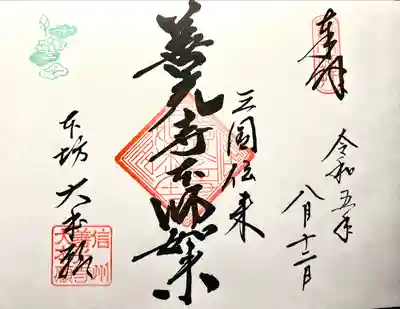 奉拝
令和五年
八月十二日
三国伝来
善光寺本師如来
本坊 大本願
信州
善光寺
大本願